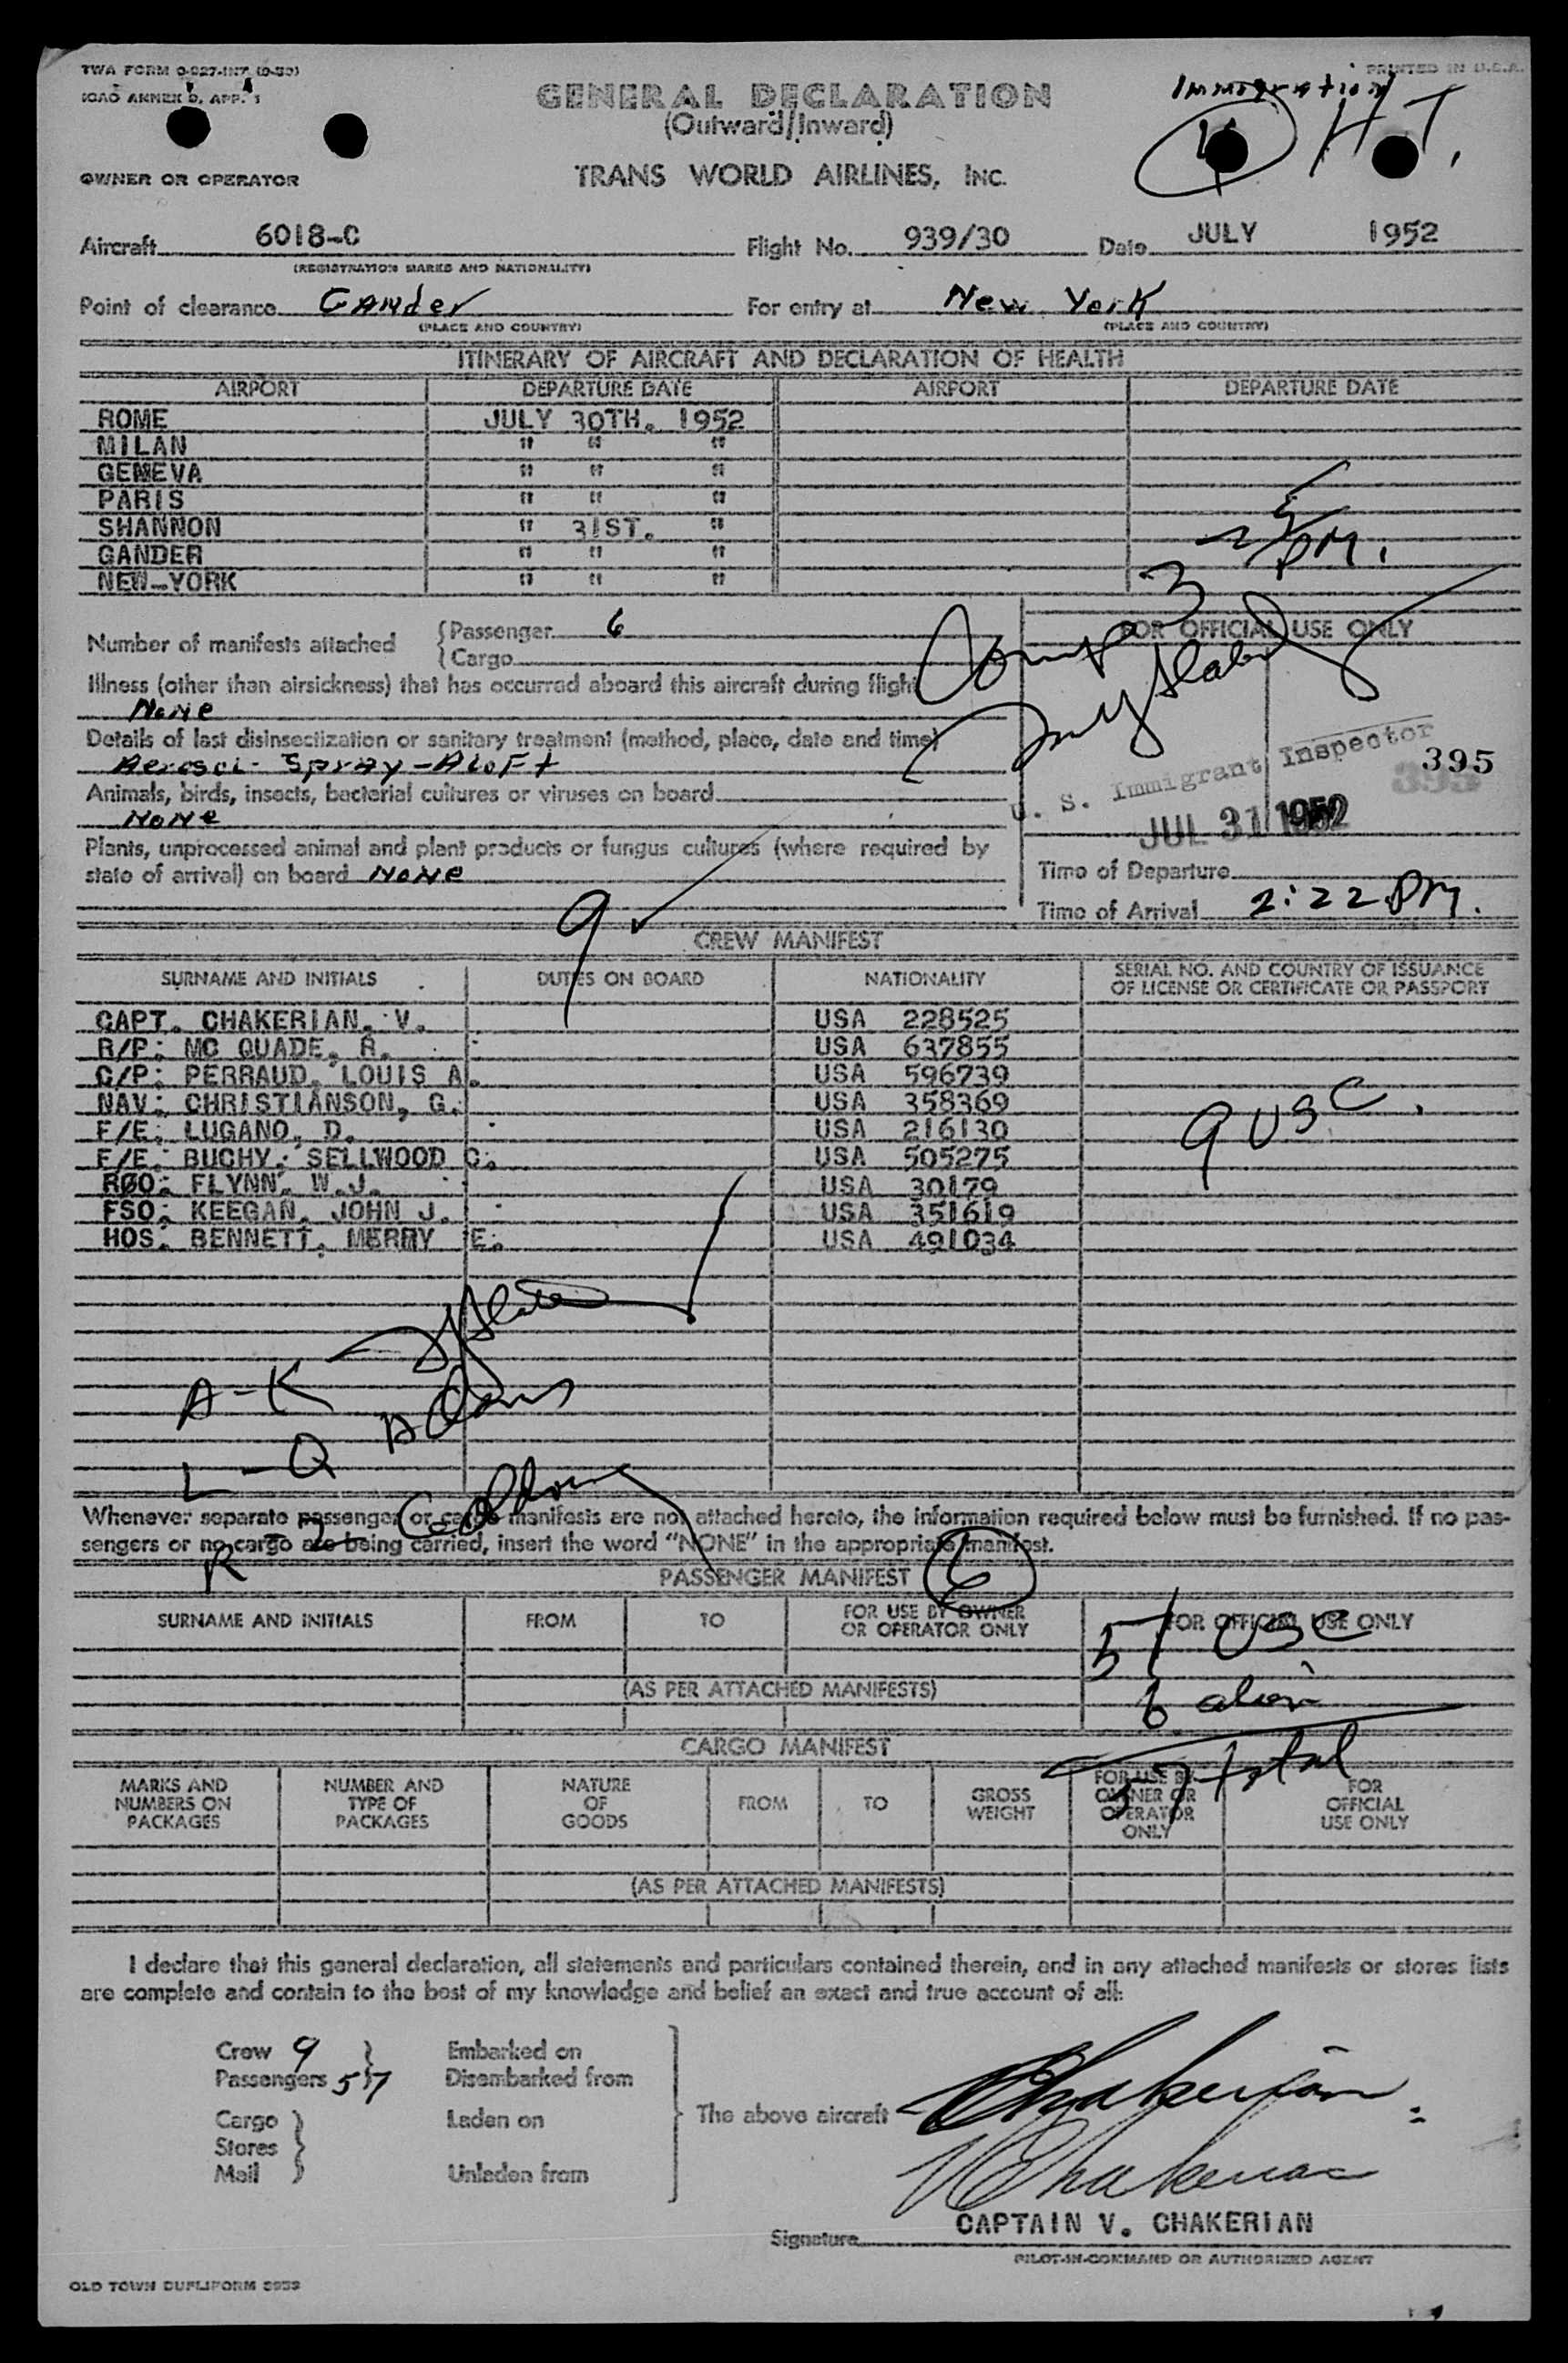 TWA FORM O-927-INT (9-50)
PRINTED IN U.S.A.
ICAO ANNEX 9, APP. 1
Immigration
GENERAL DECLARATION
(Outward/Inward)
H.T.
OWNER OR OPERATOR
TRANS WORLD AIRLINES, INC.
Aircraft 6018-C Flight No. 939/30 Date JULY 1952
(REGISTRATION MARKS AND NATIONALITY)
Point of clearance Gander For entry at New York
(PLACE AND COUNTRY) (PLACE AND COUNTRY)
ITINERARY OF AIRCRAFT AND DECLARATION OF HEALTH
AIRPORT DEPARTURE DATE AIRPORT DEPARTURE DATE
ROME JULY 30TH. 1952
MILAN " " "
GENEVA " " "
PARIS " " "
SHANNON " 31ST. "
GANDER " " "
NEW-YORK " " "
PM.
Comp 3
Number of manifests attached Passenger 6
Cargo
FOR OFFICIAL USE ONLY
Illness (other than airsickness) that has occurred aboard this aircraft during flight
None
Details of last disinsectization or sanitary treatment (method, place, date and time)
Aerosol Spray-Aloft
U. S. Immigrant Inspector 395
395
Animals, birds, insects, bacterial cultures or viruses on board
None
JUL 31 1952
Plants, unprocessed animal and plant products or fungus cultures (where required by
state of arrival) on board None
Time of Departure
Time of Arrival 2:22 PM.
9
CREW MANIFEST
SURNAME AND INITIALS DUTIES ON BOARD NATIONALITY SERIAL NO. AND COUNTRY OF ISSUANCE
OF LICENSE OR CERTIFICATE OR PASSPORT
CAPT. CHAKERIAN, V. USA 228525
R/P: MC QUADE, R. USA 637855
C/P: PERRAUD, LOUIS A. USA 596739
NAV: CHRISTIANSON, G. USA 358369
F/E: LUGANO, D. USA 216130
9 USC.
F/E: BUCHY, SELLWOOD C. USA 505275
RØO: FLYNN, W.J. USA 30179
FSO: KEEGAN, JOHN J. USA 351619
HOS: BENNETT, MERRY E. USA 491034
A-K
L-Q Adams
R-Z
Whenever separate passenger or cargo manifests are not attached hereto, the information required below must be furnished. If no pas-
sengers or no cargo are being carried, insert the word "NONE" in the appropriate manifest.
PASSENGER MANIFEST 6
SURNAME AND INITIALS FROM TO FOR USE BY OWNER
OR OPERATOR ONLY FOR OFFICIAL USE ONLY
51 USC
(AS PER ATTACHED MANIFESTS)
6 alien
57 total
CARGO MANIFEST
MARKS AND
NUMBERS ON
PACKAGES
NUMBER AND
TYPE OF
PACKAGES
NATURE
OF
GOODS
FROM
TO
GROSS
WEIGHT
FOR USE BY
OWNER OR
OPERATOR
ONLY
FOR
OFFICIAL
USE ONLY
(AS PER ATTACHED MANIFESTS)
I declare that this general declaration, all statements and particulars contained therein, and in any attached manifests or stores lists
are complete and contain to the best of my knowledge and belief an exact and true account of all:
Crew 9 Embarked on
Passengers 57 Disembarked from
The above aircraft Chakerian
Cargo Laden on
Stores
Mail Unladen from
V Chakerian
CAPTAIN V. CHAKERIAN
Signature
PILOT-IN-COMMAND OR AUTHORIZED AGENT
OLD TOWN DUPLIFORM